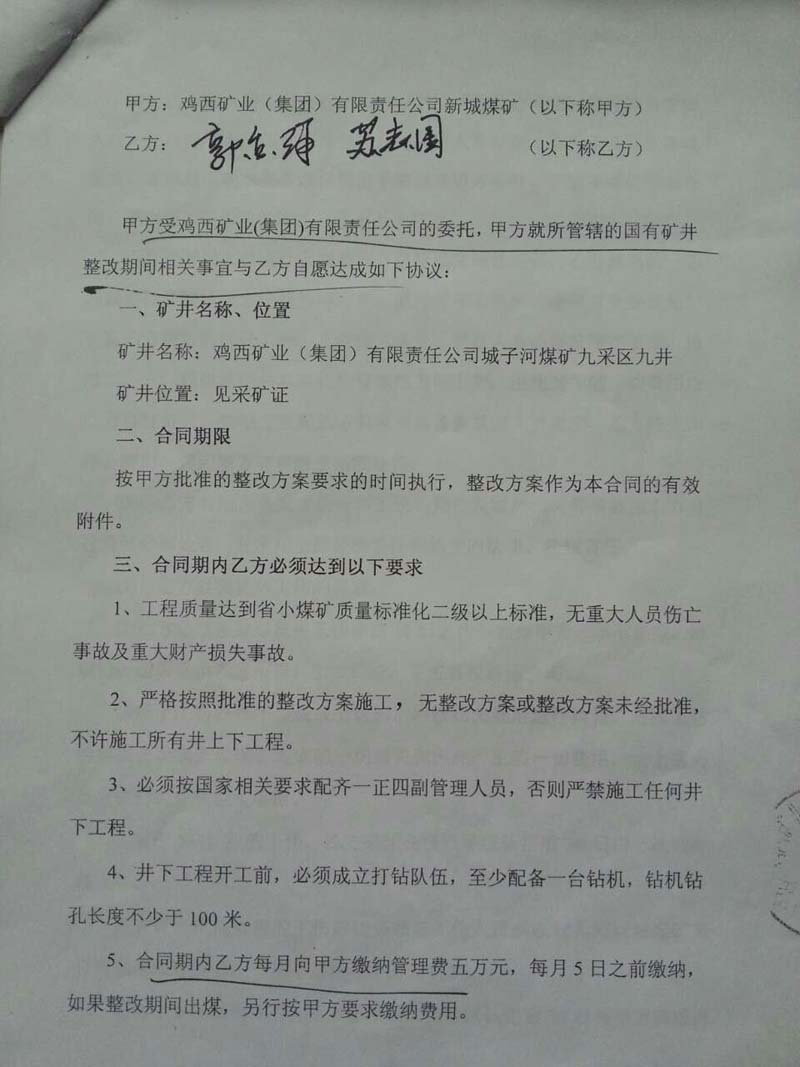 甲方：鸡西矿业（集团）有限责任公司新城煤矿（以下称甲方）
乙方： （以下称乙方）
甲方受鸡西矿业(集团)有限责任公司的委托，甲方就所管辖的国有矿井
整改期间相关事宜与乙方自愿达成如下协议：
一、矿井名称、位置
矿井名称：鸡西矿业（集团）有限责任公司城子河煤矿九采区九井
矿井位置：见采矿证
二、合同期限
按甲方批准的整改方案要求的时间执行，整改方案作为本合同的有效
附件。
三、合同期内乙方必须达到以下要求
1、工程质量达到省小煤矿质量标准化二级以上标准，无重大人员伤亡
事故及重大财产损失事故。
2、严格按照批准的整改方案施工，无整改方案或整改方案未经批准，
不许施工所有井上下工程。
3、必须按国家相关要求配齐一正四副管理人员，否则严禁施工任何井
下工程。
4、井下工程开工前，必须成立打钻队伍，至少配备一台钻机，钻机钻
孔长度不少于 100 米。
5、合同期内乙方每月向甲方缴纳管理费五万元，每月 5 日之前缴纳，
如果整改期间出煤，另行按甲方要求缴纳费用。